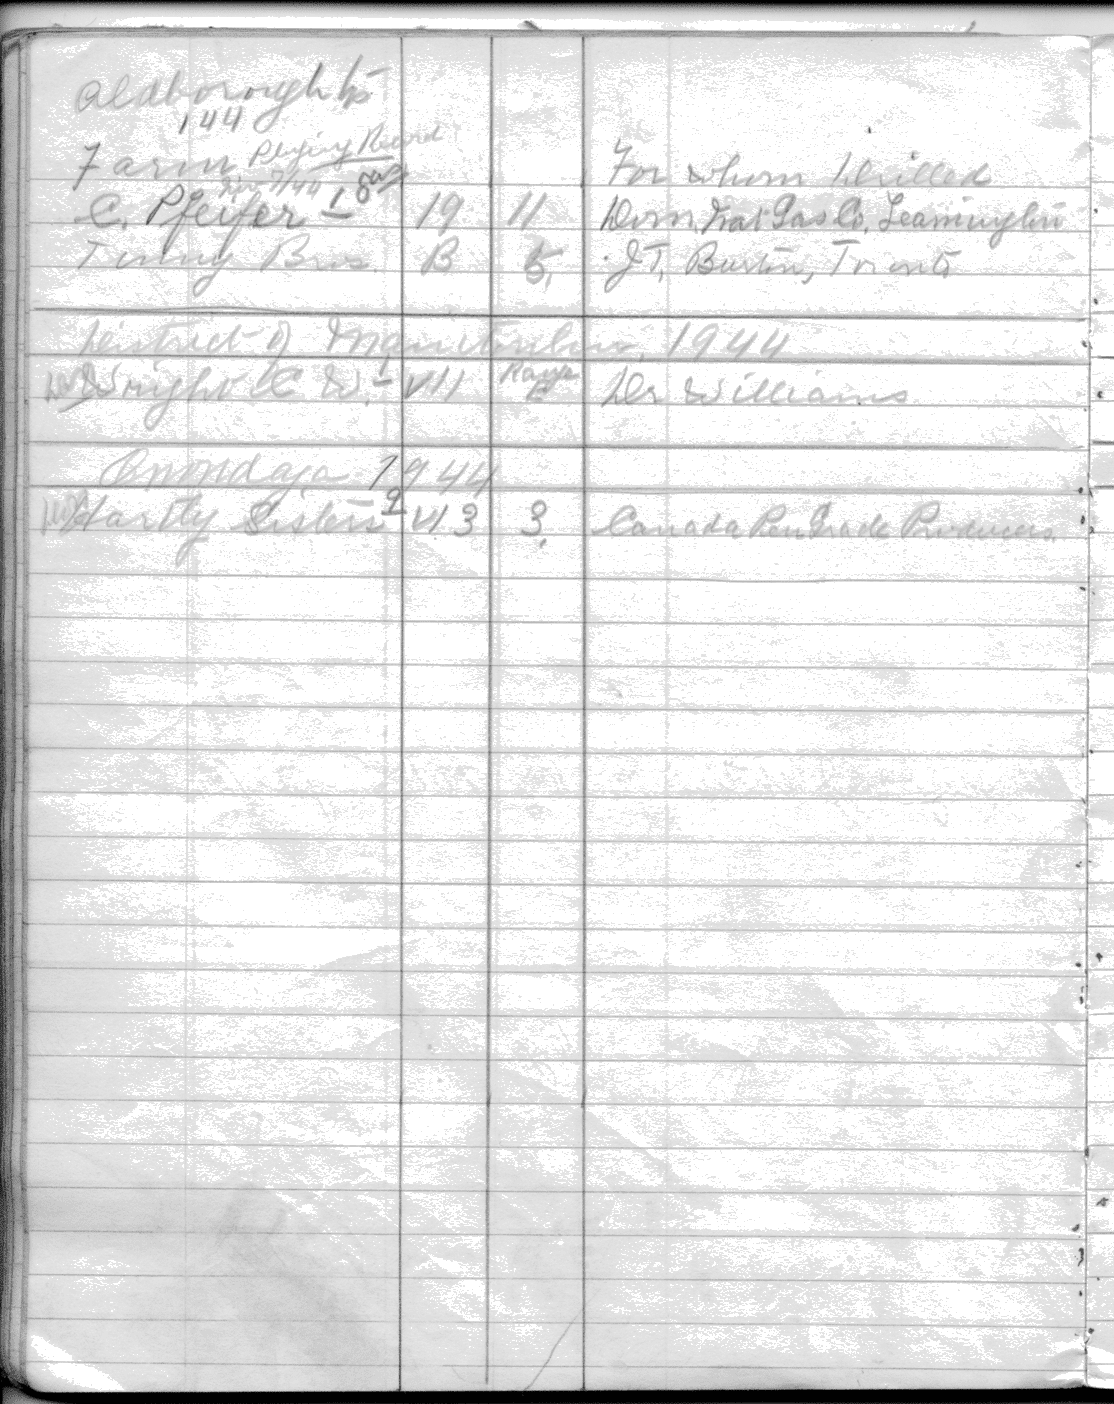 Aldborough Tp
144
Farm Plugging Record For whom Drilled
C. Pfeifer 1 19 11 Dom. Nat Gas Co, Leamington
Bros. B 5. J T, Burton, Toronto
District of Manitoulin, 1944
Wright C W. 1 VII Range Dr Williams
Onondaga 1944
Hartly Sisters 2 3 3. Canada Pen Grade Producers